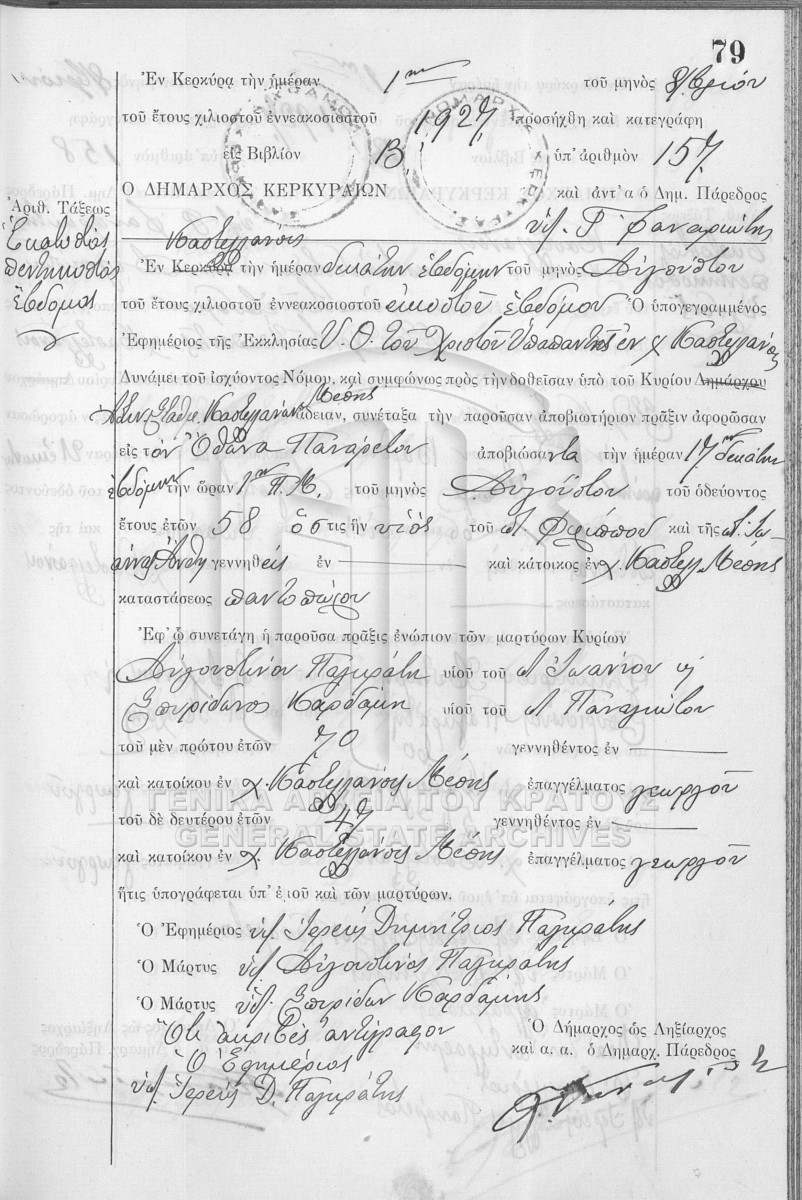 79
Ἐν Κερκύρᾳ τὴν ἡμέραν 1ην τοῦ μηνὸς 8/βρίου
τοῦ ἔτους χιλιοστοῦ ἐννεακοσιοστοῦ 1927, προσήχθη καὶ κατεγράφη
εἰς Βιβλίον Β' ὑπ' ἀριθμὸν 157.
Ο ΔΗΜΑΡΧΟΣ ΚΕΡΚΥΡΑΙΩΝ καὶ ἀντ' α ὁ Δημ. Πάρεδρος
Ἀριθ. Τάξεως
Ἑκατοστὸς
πεντηκοστὸς
ἕβδομος
ὑπ. Γ. Φαναριώτης
Καστελλάνοις
Ἐν Κερκύρᾳ τὴν ἡμέραν δεκάτην ἑβδόμην τοῦ μηνὸς Αὐγούστου
τοῦ ἔτους χιλιοστοῦ ἐννεακοσιοστοῦ εἰκοστοῦ ἑβδόμου Ὁ ὑπογεγραμμένος
Ἐφημέριος τῆς Ἐκκλησίας Υ. Θ. τοῦ Χριστοῦ Ὑπαπαντῆς ἐν χ Καστελλάνοις
Δυνάμει τοῦ ἰσχύοντος Νόμου, καὶ συμφώνως πρὸς τὴν δοθεῖσαν ὑπὸ τοῦ Κυρίου Δημάρχου
Ἀστυν. Σταθμ. Καστελλάνων Μέσης ἄδειαν, συνέταξα τὴν παροῦσαν ἀποβιωτήριον πρᾶξιν ἀφορῶσαν
εἰς τὸν Παναρέτου ἀποβιώσαντα τὴν ἡμέραν 17ην δεκάτην
ἑβδόμην τὴν ὥραν 1ην Π.Μ. τοῦ μηνὸς Αὐγούστου τοῦ ὁδεύοντος
ἔτους ἐτῶν 58 ὅστις ἦν υἱὸς τοῦ Φιλίππου καὶ τῆς
γεννηθεὶς ἐν καὶ κάτοικος ἐν χ. Καστελλ Μέσης
καταστάσεως παντοπώλου
Ἐφ' ᾧ συνετάγη ἡ παροῦσα πρᾶξις ἐνώπιον τῶν μαρτύρων Κυρίων
Αὐγουστίνου Παγκράτη υἱοῦ τοῦ Ἰωάννου
Σπυρίδωνος Καρδάμη υἱοῦ τοῦ Παναγιώτου
τοῦ μὲν πρώτου ἐτῶν 70 γεννηθέντος ἐν
καὶ κατοίκου ἐν χ. Καστελλάνοις Μέσης ἐπαγγέλματος γεωργοῦ
ΓΕΝΙΚΑ ΑΡΧΕΙΑ ΤΟΥ ΚΡΑΤΟΥΣ
τοῦ δὲ δευτέρου ἐτῶν 47 γεννηθέντος ἐν
GENERAL STATE ARCHIVES
καὶ κατοίκου ἐν χ. Καστελλάνοις Μέσης ἐπαγγέλματος γεωργοῦ
ἥτις ὑπογράφεται ὑπ' ἐμοῦ καὶ τῶν μαρτύρων.
Ὁ Ἐφημέριος ὑπ. Ἱερεὺς Δημήτριος Παγκράτης
Ὁ Μάρτυς ὑπ. Αὐγουστῖνος Παγκράτης
Ὁ Μάρτυς ὑπ. Σπυρίδων Καρδάμης
Ὅτι ἀκριβὲς ἀντίγραφον
Ὁ Ἐφημέριος
ὑπ. Ἱερεὺς Δ. Παγκράτης
Ὁ Δήμαρχος ὡς Ληξίαρχος
καὶ α. α. ὁ Δημαρχ. Πάρεδρος